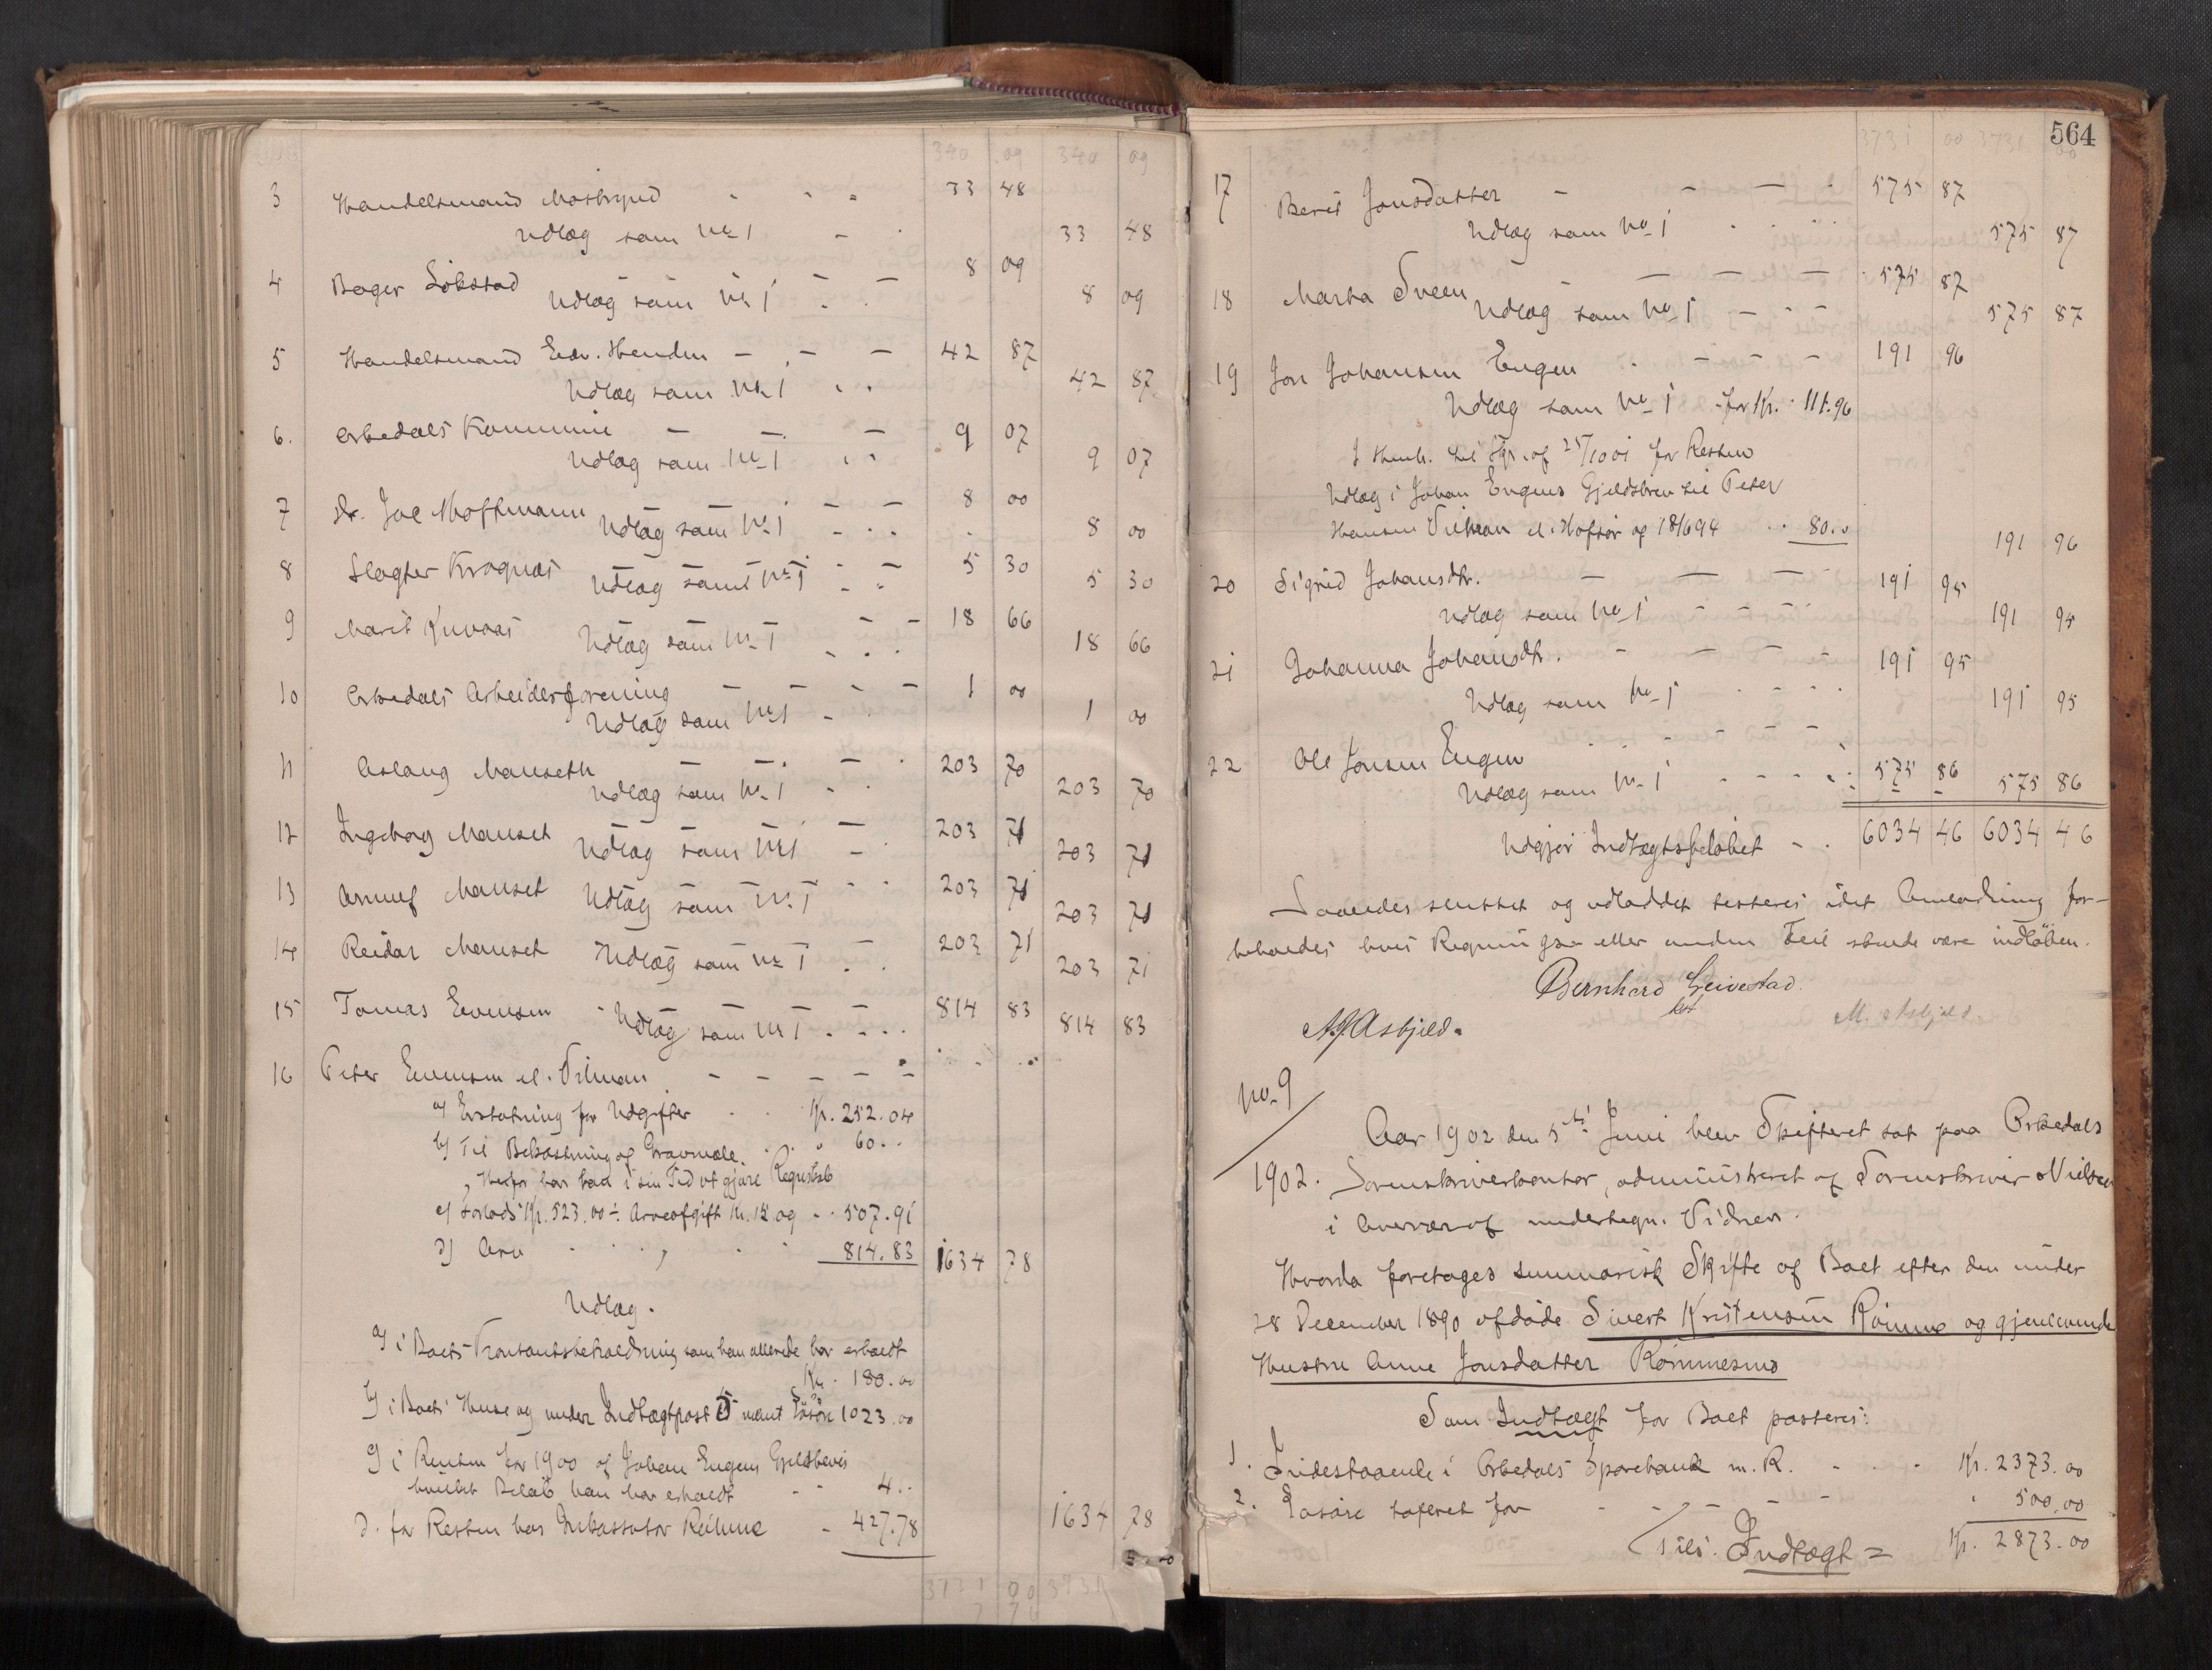 340 09 340 09
3 Handelsmand Mostrynd - - - 33 48
Udlæg som No 1 - - 33 48
4 Bager Løkstad - - - 8 09
Udlæg som No 1 - - 8 09
5 Handelsmand Edv. Henden - - - 42 87
Udlæg som No 1 - - 42 87
6. Orkedals Kommune - - - 9 07
Udlæg som No 1 - - 9 07
7 Dr. Joe Moffmann - - - 8 00
Udlæg som No 1 - - - 8 00
8 Slagter Kragnæs - - - 5 30
Udlæg som No 1 - - 5 30
9 Marit Kuvaas - - 18 66
Udlæg som No 1 - - - 18 66
10 Orkedals Arbeiderforening - - - - 1 00
Udlæg som No 1 - - 1 00
11 Aslaug Manseth - - - - 203 70
Udlæg som No 1 - - 203 70
12 Ingeborg Manset - - - - 203 71
Udlæg som No 1 - - 203 71
13 Arnulf Manset - - - - 203 71
Udlæg som No 1 203 71
14 Reidar Manset - - - - 203 71
Udlæg som No 1 - - 203 71
15 Tomas Evensen - - - - 814 83
Udlæg som No 1 - - - 814 83
16 Peter Evensen el. Vilman - - - - -
a) Erstatning for Udgifter - - Kr. 252.04
b) Til Bekostning af Gravmæle - - " 60 - -
Herfor har han i sin Tid at gjøre Regnskab
c) Forlods Kr. 523.00 ÷ Arveafgift Kr. 15.09 - - 507.91
d) Arv - - - - - 814.83 1634 78
Udlæg.
a) i Boets Kontantbeholdning som han allerede har erholdt
Kr. 180.00
b) i Boets Huse og under Indtægtpost 5 nævnt Løsøre 1023.00
c) i Renten for 1900 af Johan Engens Gjeldsbevis
hvilket Beløb han har erholdt - - 4 - -
d. for Resten hos Inkassator Reihme - 427.78 1634 78
3731 00 3731
564
3731 00 3731 00
17 Berit Jonsdatter - - - - 575 87
Udlæg som No 1 - - - 575 87
18 Marta Sveen - - - - 575 87
Udlæg som No 1 - - - 575 87
19 Jon Johansen Engen - - - - 191 96
Udlæg som No 1 for Kr. 111.96
I Henh. til Skr. af 25/10 01 for Resten
Udlæg i Johan Engens Gjeldsbrev til Peter
Hansen Vilman el. Hofsør af 18/6 94 - - 80.0 191 96
20 Sigrid Johansdtr. - - - 191 95
Udlæg som No 1 - - - - 191 95
21 Johanna Johansdtr. - - - - 191 95
Udlæg som No 1 - - - - 191 95
22 Ole Jonsen Engen - - - - - 575 86
Udlæg som No 1 - - - - - 575 86
Udgjør Indtægtsbeløbet - - 6034 46 6034 46
Saaledes sluttet og udloddet testeres idet Anledning for-
beholdes hvis Regnings- eller anden Feil skulde være indløben.
Bernhard Leivestad.
kst
A. Asbjeld. M. Asbjeld
No 9
/
1902.
Aar 1902 den 5te Juni blev Skifteret sat paa Orkedals
Sorenskriverkontor, administreret af Sorenskriver Nielsen
i Overvær af undertegn. Vidner.
Hvorda foretages summarisk Skifte af Boet efter den under
28 December 1890 afdøde Sivert Kristensen Rømme og gjenlevende
Hustru Anne Jonsdatter Rømmesmo
Som Indtægt for Boet posteres:
1. Indestaaende i Orkedals Sparebank m. R. - - - Kr. 2373.00
2. Løsøre taxeret for - - - - - - " 500.00
Tils. Indtægt = Kr. 2873.00